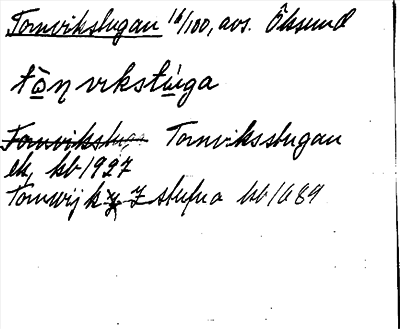 Tornvikstugan 10/100, avs. Öksund
tọ̀ɳvikstu̱̇ga
Tornvikstuga Tornviksstugan
ek, kb 1927
Tornwijk z stufua kb 1689